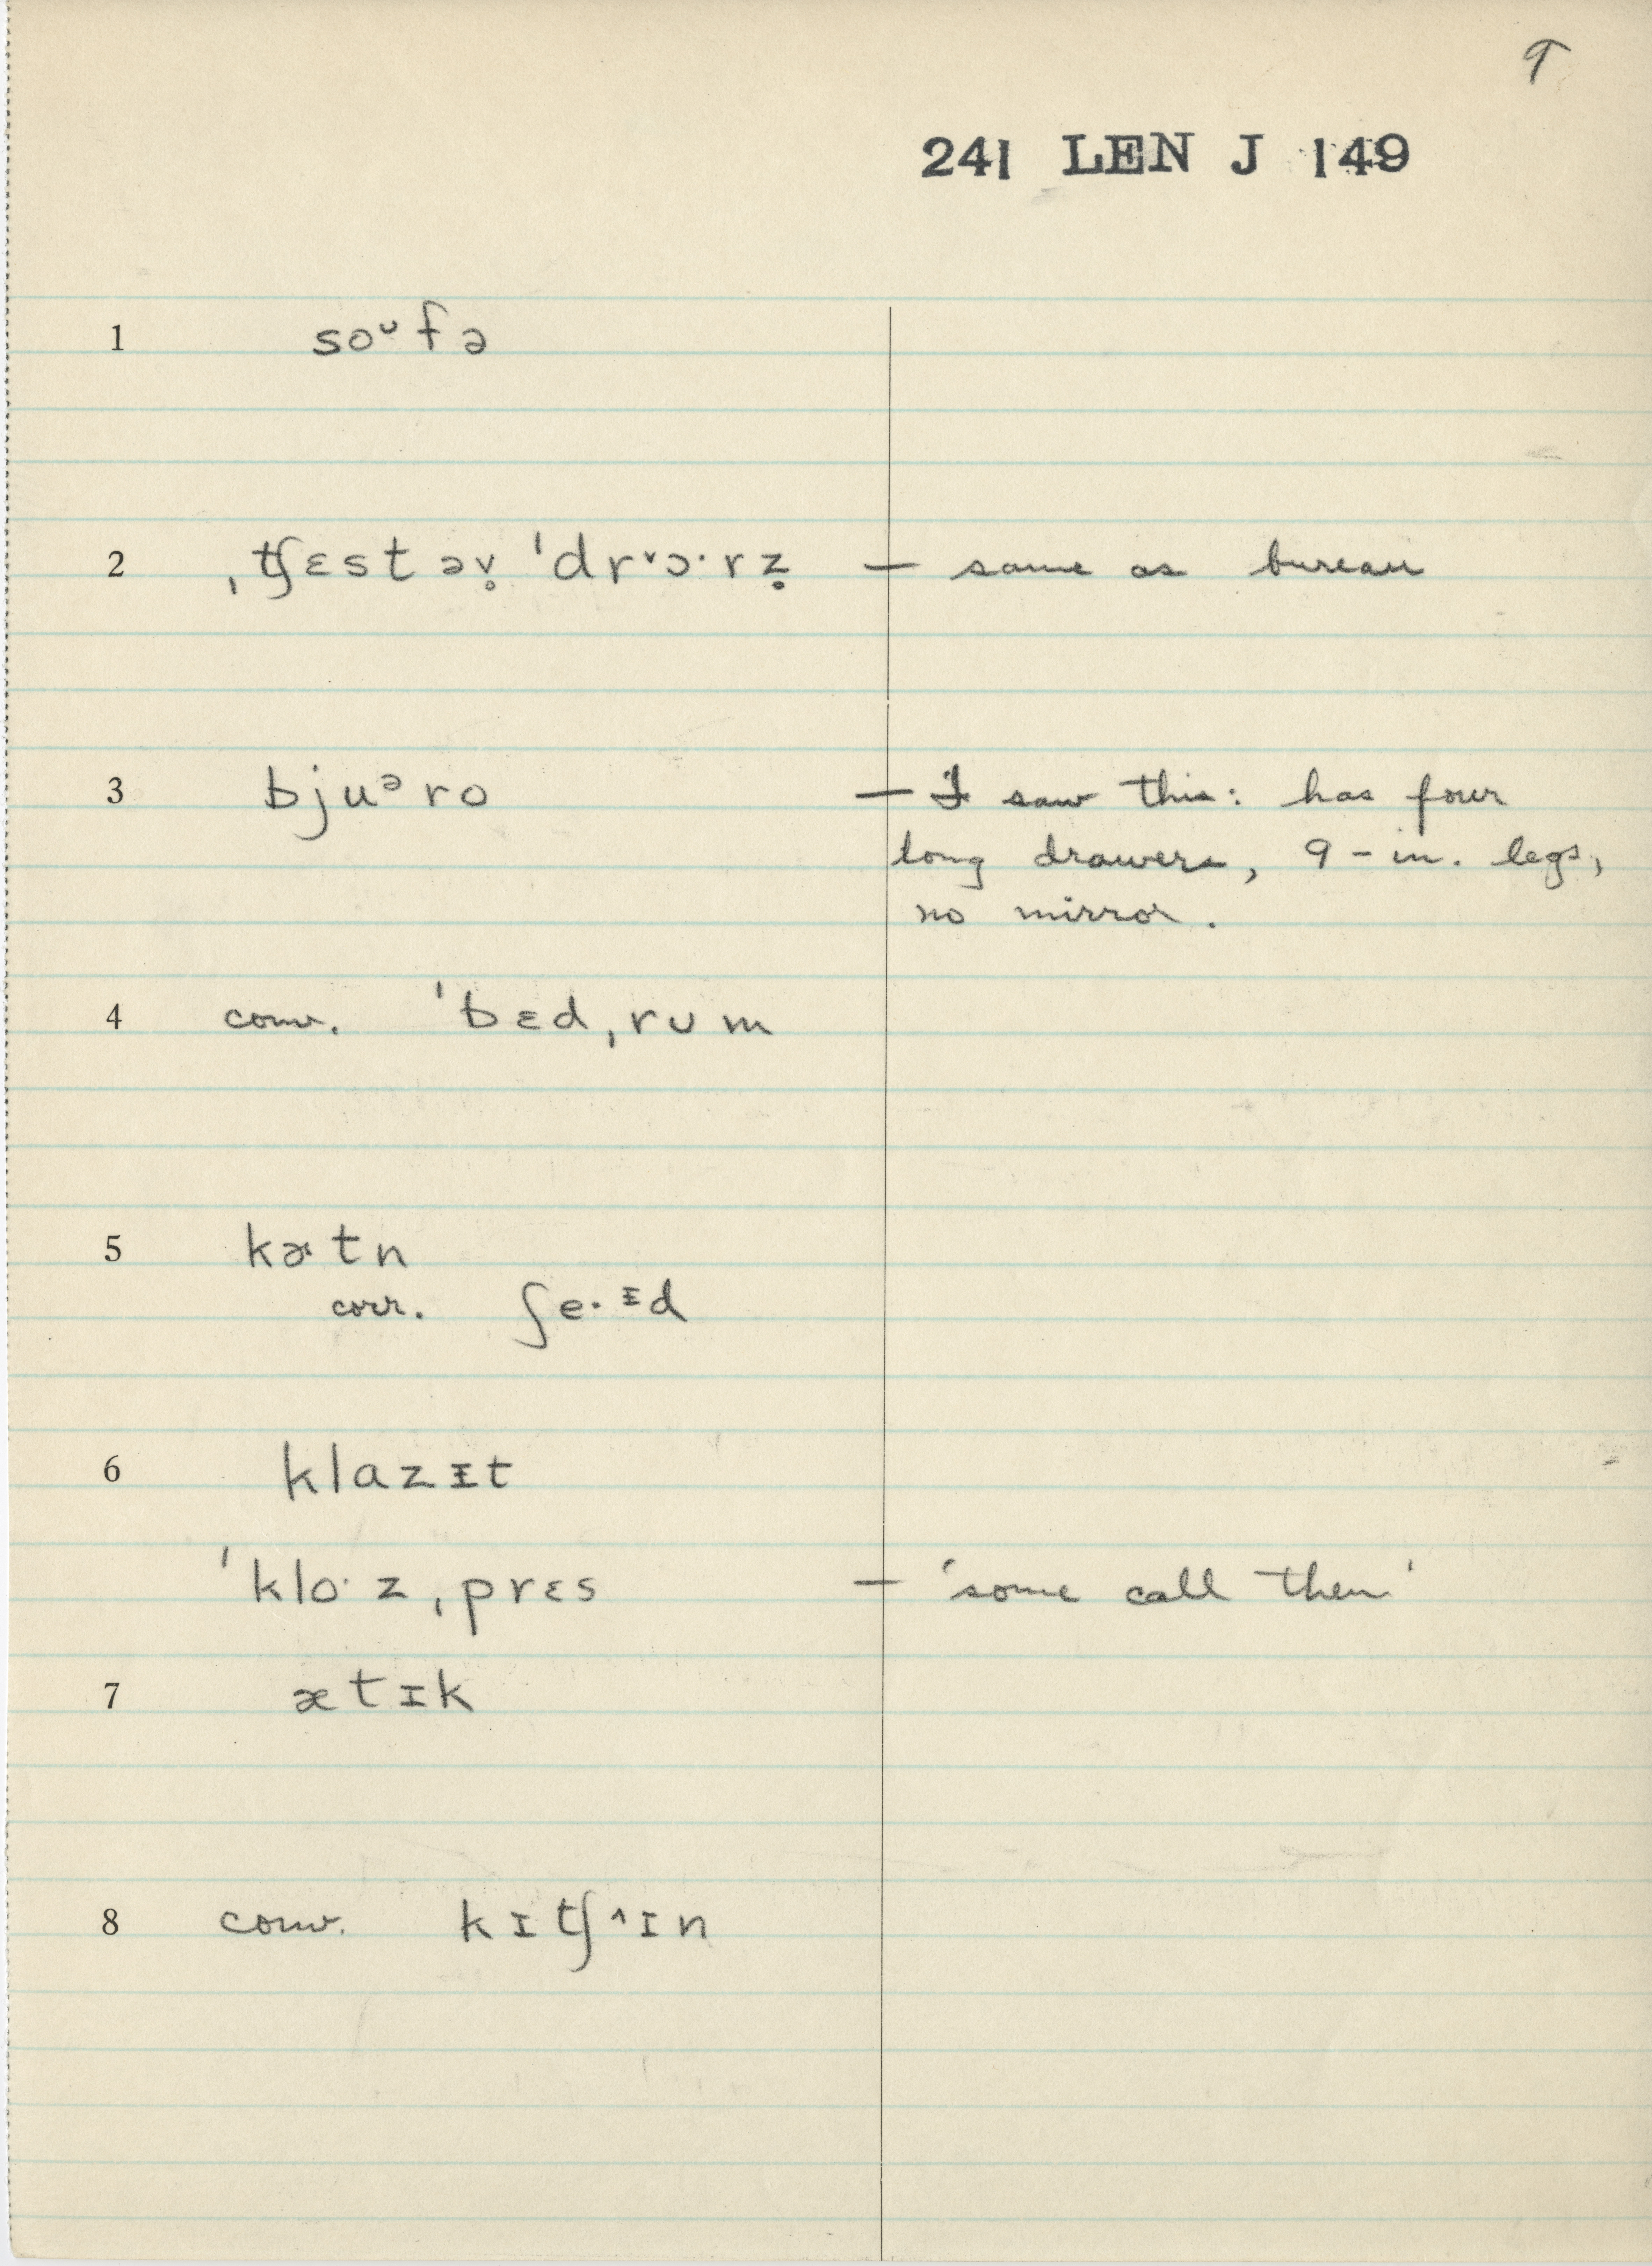 9
241 LEN J 149
1 soᶷfə
2 ˌʧɛst əv̥ ˈdrᵛɔ·rz̥ — same as bureau
3 bjuᵊro — I saw this: has four
long drawers, 9-in. legs,
no mirror.
4 conv. ˈbɛdˌrʊm
5 kætn
corr. ʃe·ᵻd
6 klazɪt
ˈklo·zˌprɛs — 'some call them'
7 ætɪk
8 conv. kɪʧ^ɪn